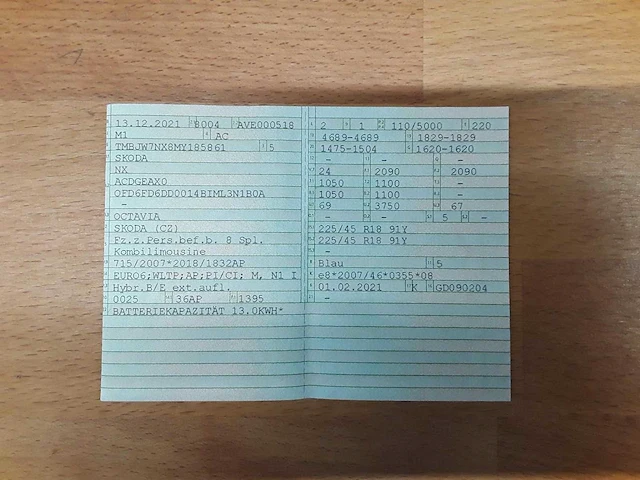 13.12.2021 8004 AVE000518
M1 AC
TMBJW7NX8MY185861 5
SKODA
NX
ACDGEAX0
OFD6FD6DD0014BIML3N1B0A
-
OCTAVIA
SKODA (CZ)
Fz.z.Pers.bef.b. 8 Spl.
Kombilimousine
715/2007*2018/1832AP
EURO6;WLTP;AP;PI/CI; M, N1 I
Hybr.B/E ext.aufl.
0025 36AP 1395
BATTERIEKAPAZITÄT 13,0KWH*
2 1 110/5000 220
4689-4689 1829-1829
1475-1504 1620-1620
- - -
24 2090 2090
1050 1100 -
1050 1100 -
69 3750 67
- - 5 -
225/45 R18 91Y
225/45 R18 91Y
-
Blau 5
e8*2007/46*0355*08
01.02.2021 K GD090204
-